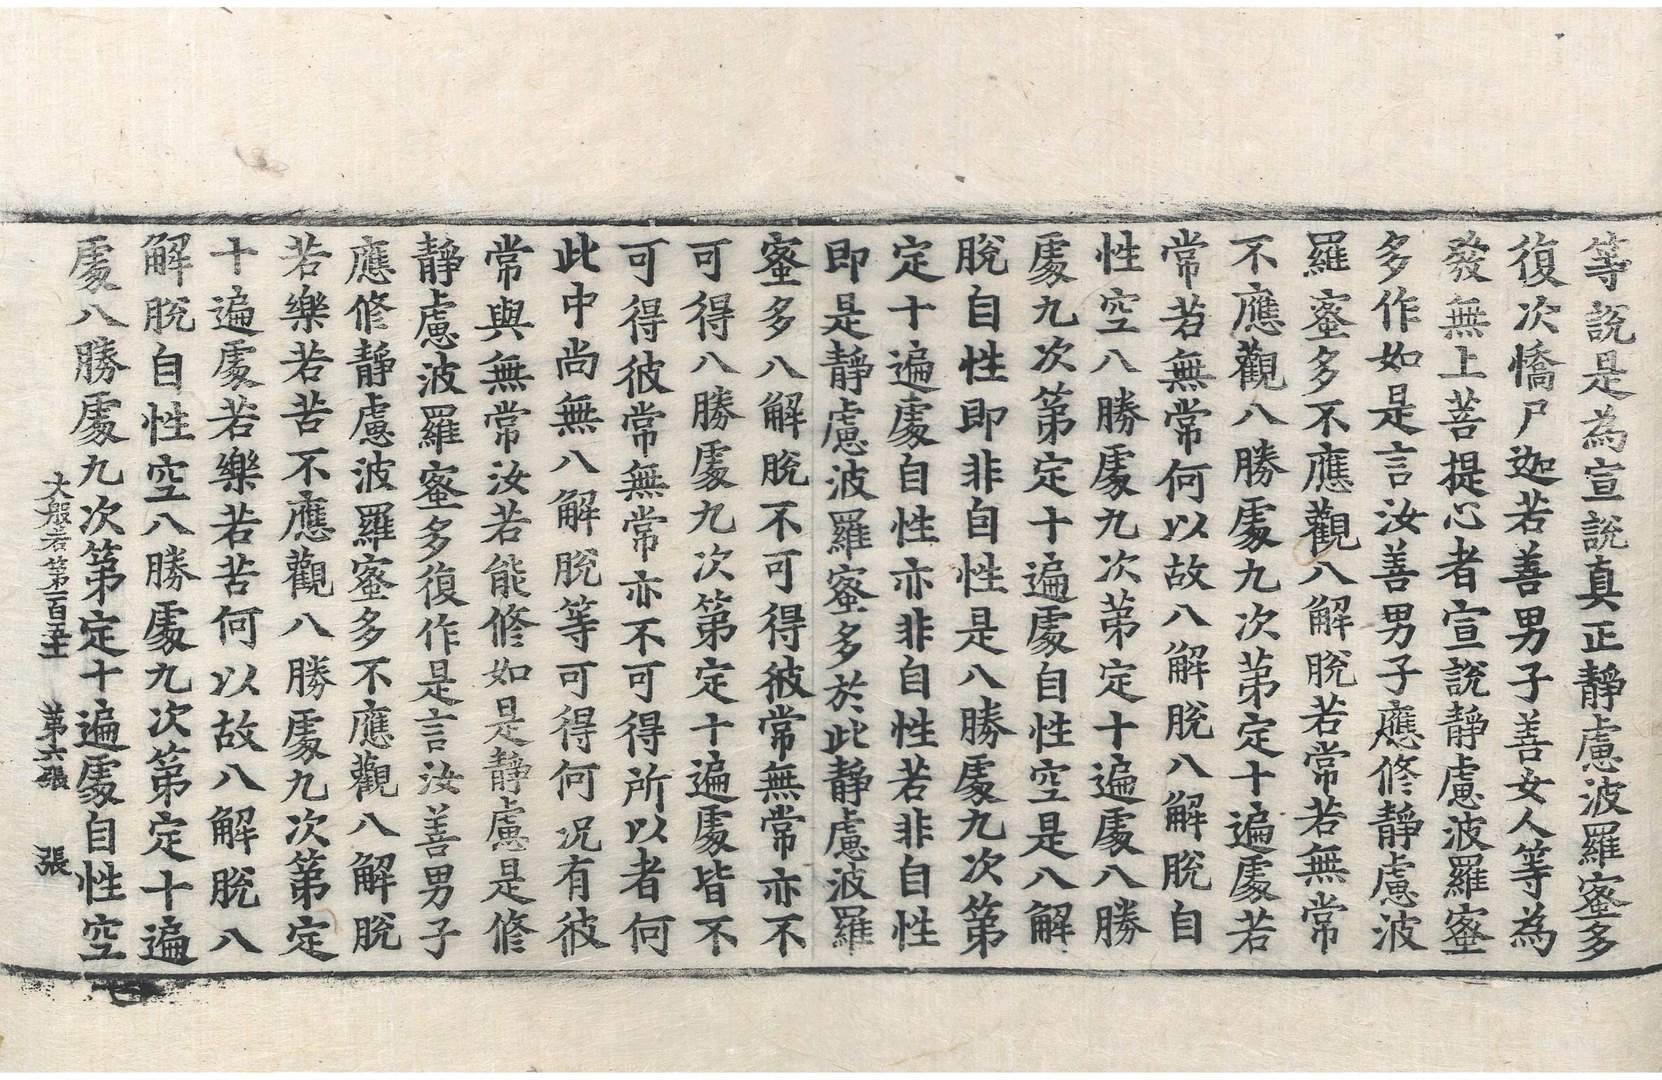 等說是為宣說真正靜慮波羅蜜多
復次憍尸迦若善男子善女人等為
發無上菩提心者宣說靜慮波羅蜜
多作如是言汝善男子應修靜慮波
羅蜜多不應觀八解脫若常若無常
不應觀八勝處九次第定十遍處若
常若無常何以故八解脫八解脫自
性空八勝處九次第定十遍處八勝
處九次第定十遍處自性空是八解
脫自性即非自性是八勝處九次第
定十遍處自性亦非自性若非自性
即是靜慮波羅蜜多於此靜慮波羅
蜜多八解脫不可得彼常無常亦不
可得八勝處九次第定十遍處皆不
可得彼常無常亦不可得所以者何
此中尚無八解脫等可得何況有彼
常與無常汝若能修如是靜慮是修
靜慮波羅蜜多復作是言汝善男子
應修靜慮波羅蜜多不應觀八解脫
若樂若苦不應觀八勝處九次第定
十遍處若樂若苦何以故八解脫八
解脫自性空八勝處九次第定十遍
處八勝處九次第定十遍處自性空
大般若第一百五十一 第六張 張